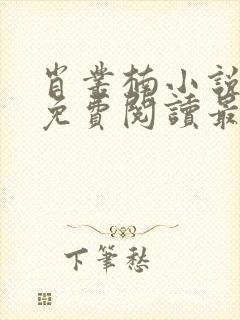 肖業楠小說
免費閱讀最
下筆愁